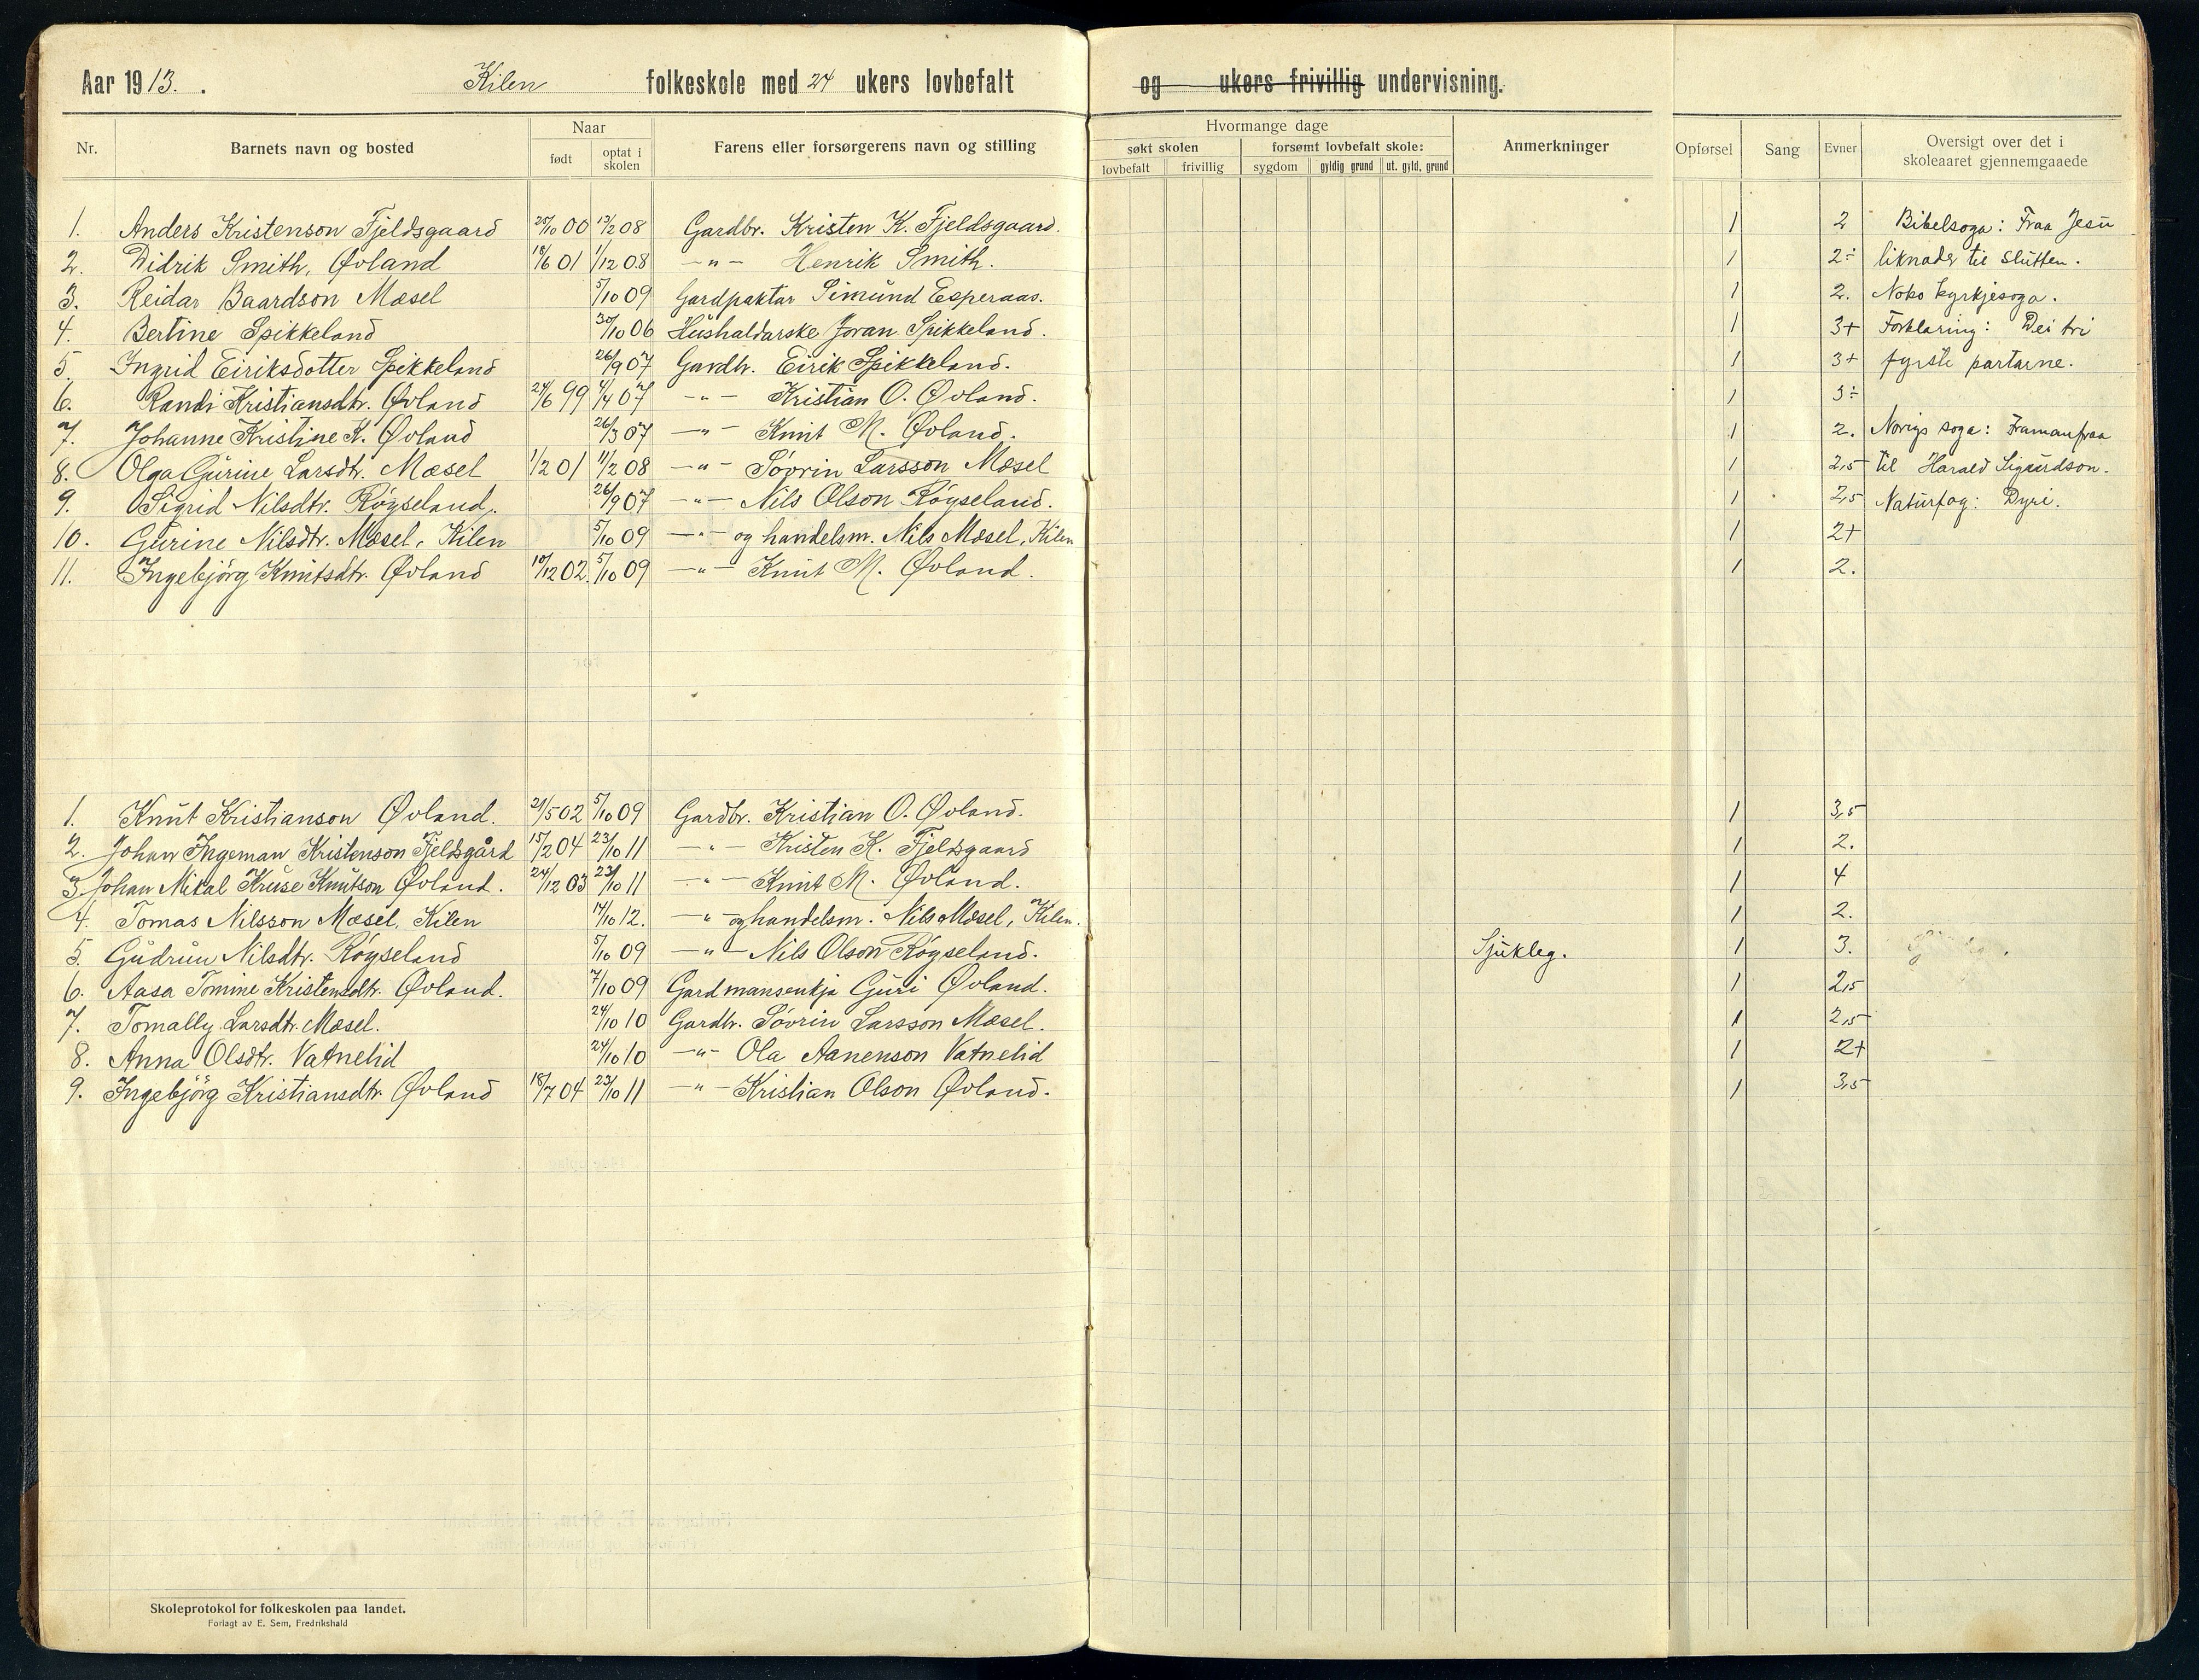 Aar 1913. Kilen folkeskole med 24 ukers lovbefalt og ukers frivillig undervisning.
Nr. Barnets navn og bosted Naar født optat i skolen Farens eller forsørgerens navn og stilling Hvormange dage søkt skolen lovbefalt frivillig forsømt lovbefalt skole: sygdom gyldig grund ut. gyld. grund Anmerkninger Opførsel Sang Evner Oversigt over det i skoleaaret gjennemgaaede
1. Anders Kristenson Fjeldsgaard 25/10 00 13/2 08 Gardbr. Kristen K. Fjeldsgaard. 1 2 Bibelsoga: Fraa Jesu
2. Didrik Smith, Øvland 18/6 01 1/12 08 —„— Henrik Smith. 1 2÷ liknader til slutten.
3. Reidar Baardson Mæsel 5/10 09 Gardpaktar Simund Esperaas. 1 2. Noko kyrkjesoga.
4. Bertine Spikkeland 30/10 06 Hushaldarske Joran Spikkeland. 1 3+ Forklaring: Dei tri
5. Ingrid Eiriksdotter Spikkeland 26/9 07 Gardbr. Eirik Spikkeland. 1 3+ fyrste partarne.
6. Randi Kristiansdtr. Øvland 24/6 99 4/4 07 —„— Kristian O. Øvland. 1 3÷
7. Johanne Kristine K. Øvland 26/3 07 —„— Knut M. Øvland. 1 2. Norigs soga: Framanfraa
8. Olga Gurine Larsdtr. Mæsel 1/2 01 11/2 08 —„— Sövrin Larsson Mæsel 1 2,5 til Harald Sigurdson.
9. Sigrid Nilsdtr. Röyseland. 26/9 07 —„— Nils Olson Röyseland. 1 2,5 Naturfag: Dyri.
10. Gurine Nilsdtr. Mæsel, Kilen 5/10 09 —„— og handelsm. Nils Mæsel, Kilen 1 2+
11. Ingebjörg Knutsdtr. Øvland 10/12 02. 5/10 09 —„— Knut M. Øvland. 1 2.
1. Knut Kristianson Øvland. 21/5 02 5/10 09 Gardbr. Kristian O. Øvland. 1 3,5
2. Johan Ingeman Kristenson Fjeldsgård 15/2 04 23/10 11 —„— Kristen K. Fjeldsgaard 1 2.
3. Johan Mikal Kruse Knutson Øvland. 24/12 03 23/10 11 —„— Knut M. Øvland. 1 4
4. Tomas Nilsson Mæsel, Kilen 14/10 12. —„— og handelsm. Nils Mæsel, Kilen. 1 2.
5. Gudrun Nilsdtr. Röyseland 5/10 09 —„— Nils Olson Röyseland. Sjukleg. 1 3.
6. Aasa Tomine Kristensdtr. Øvland. 7/10 09 Gardmansenkja Guri Øvland. 1 2,5
7. Tomally Larsdtr. Mæsel. 24/10 10 Gardbr. Sövrin Larsson Mæsel. 1 2,5
8. Anna Olsdtr. Vatnelid 24/10 10 —„— Ola Aanenson Vatnelid 1 2+
9. Ingebjörg Kristiansdtr. Øvland 18/7 04 23/10 11 —„— Kristian Olson Øvland. 1 3,5
Skoleprotokol for folkeskolen paa landet.
Forlagt av E. Sem, Fredrikshald